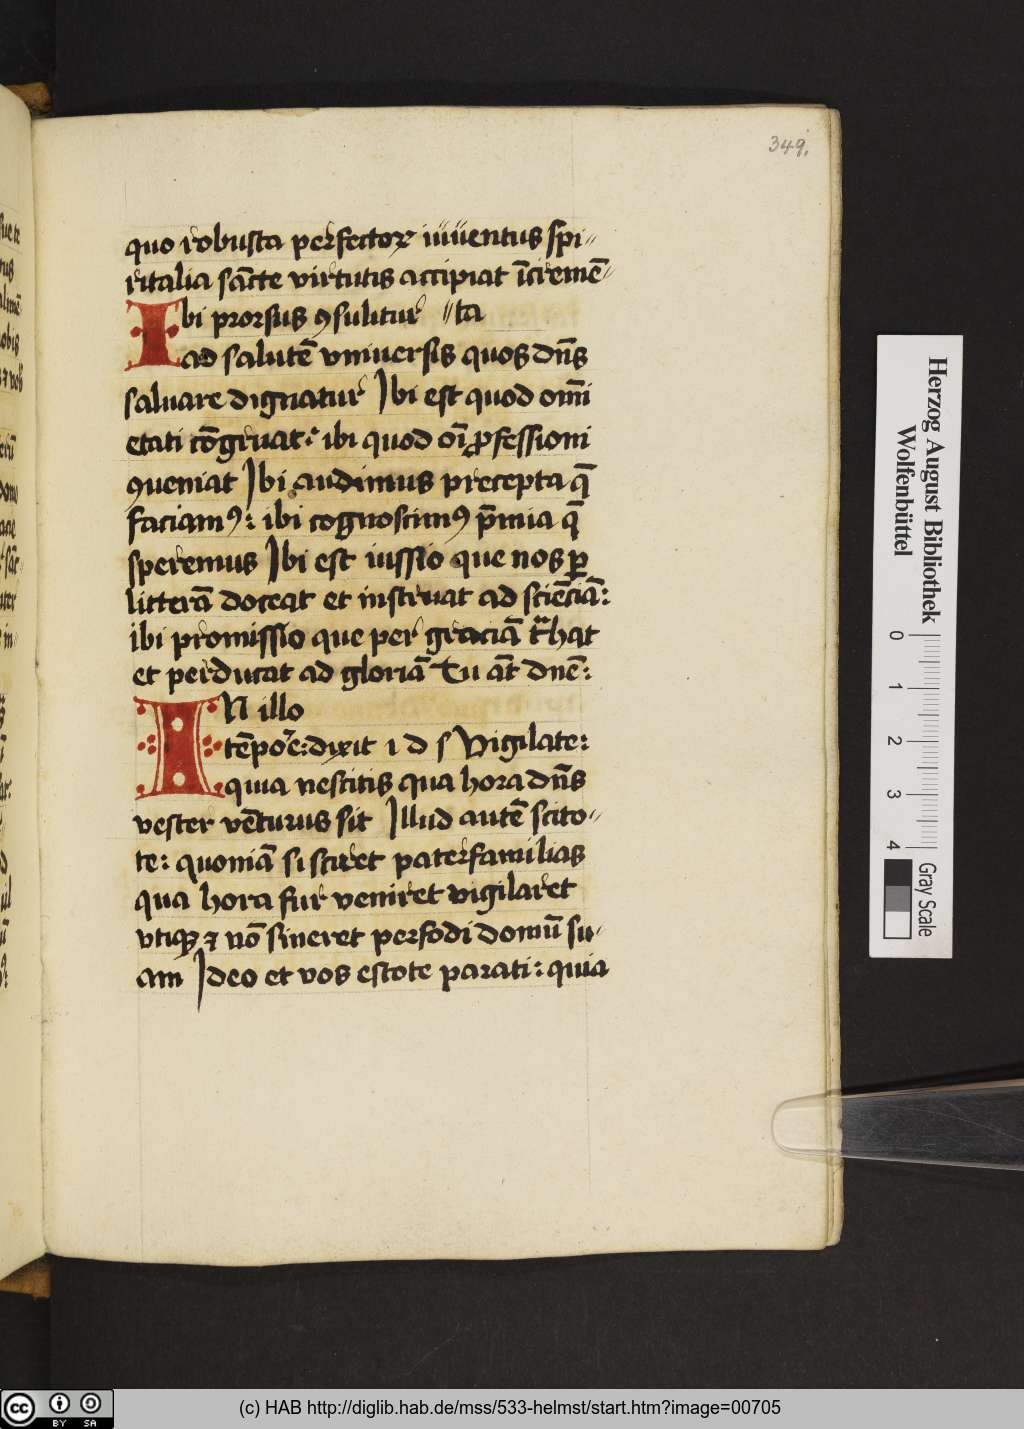 349.
quo robusta perfectoꝝ iuuentus spi〃
ritalia sācte virtutis accipiat īcremē〃
Ibi prorsus ꝯsulitur 〃ta
ad salutē vniuersis quos dn̄s
saluare dignatur Ibi est quod om̄i
etati cōgruat: ibi quod oī ꝓfessioni
ꝯueniat Ibi audimus precepta q̄
faciamꝰ: ibi cognoscimꝰ p̄mia q̄
speremus Ibi est iussio que nos ꝑ
litterā doceat et instruat ad sciēciā:
ibi promissio que per graciā t̄hat
et perducat ad gloriā Tu āt dn̄e:
IN illo
tēpore: dixit i d s Vigilate:
quia nescitis qua hora dn̄s
vester vēturus sit Illud autē scito〃
te: quoniā si sciret paterfamilias
qua hora fur veniret vigilaret
vtiqꝫ ⁊ nō sineret perfodi domū su〃
am Ideo et vos estote parati: quia
Herzog August Bibliothek
Wolfenbüttel
0 1 2 3 4
Gray Scale
cc BY SA
(c) HAB http://diglib.hab.de/mss/533-helmst/start.htm?image=00705